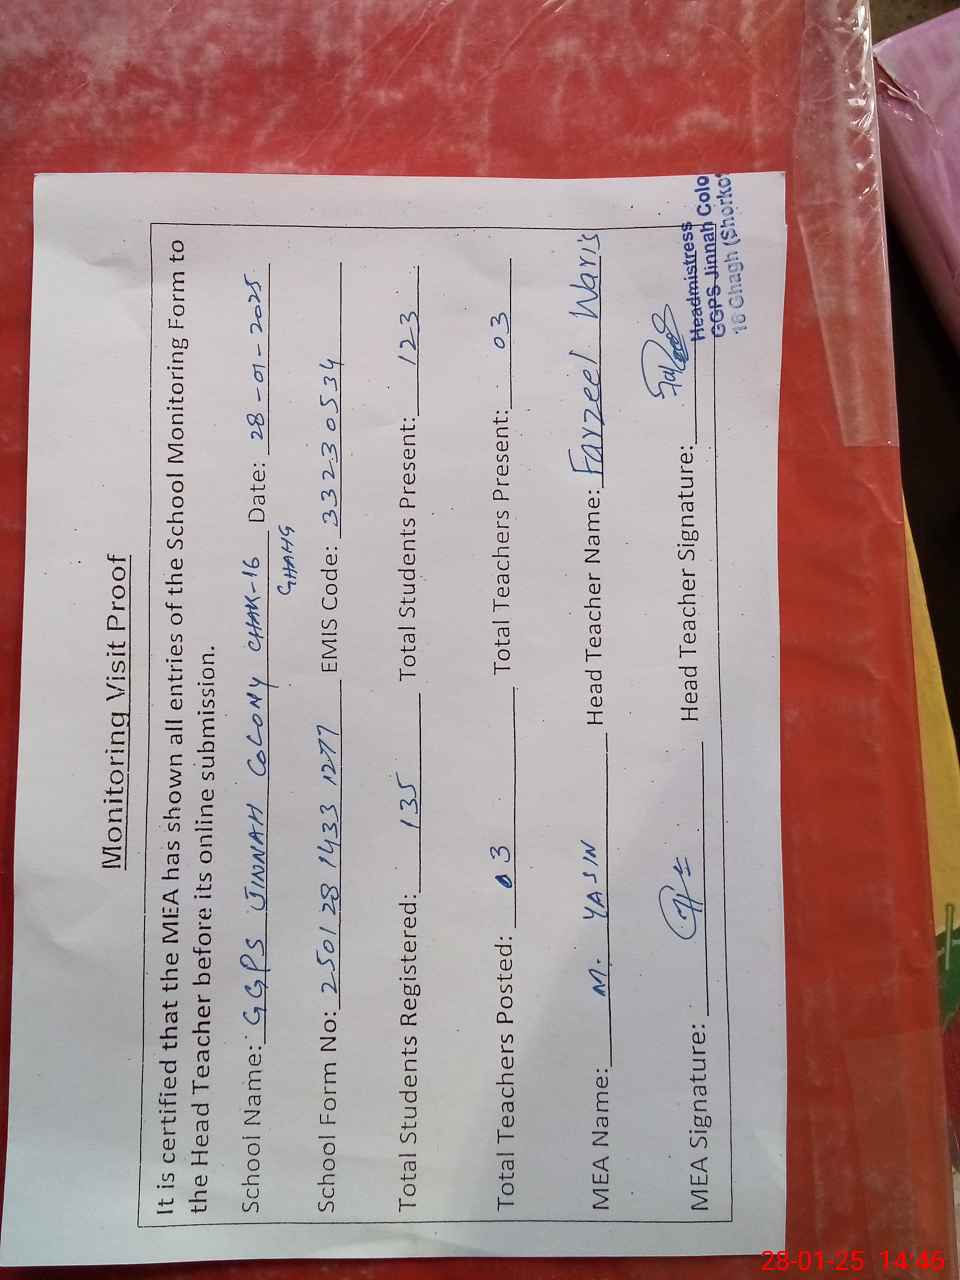 Monitoring Visit Proof
It is certified that the MEA has shown all entries of the School Monitoring Form to
the Head Teacher before its online submission.
School Name: GGPS JINNAH COLONY CHAK-16 Date: 28-01-2025
GHAHG
School Form No: 250128 1433 1277 EMIS Code: 33230534
Total Students Registered: 135 Total Students Present: 123
Total Teachers Posted: 03 Total Teachers Present: 03
MEA Name: M. YASIN Head Teacher Name: Farzeel Waris
MEA Signature: Head Teacher Signature:
Headmistress
GGPS Jinnah Colo
16 Ghagh (Shorko
28-01-25 14:45